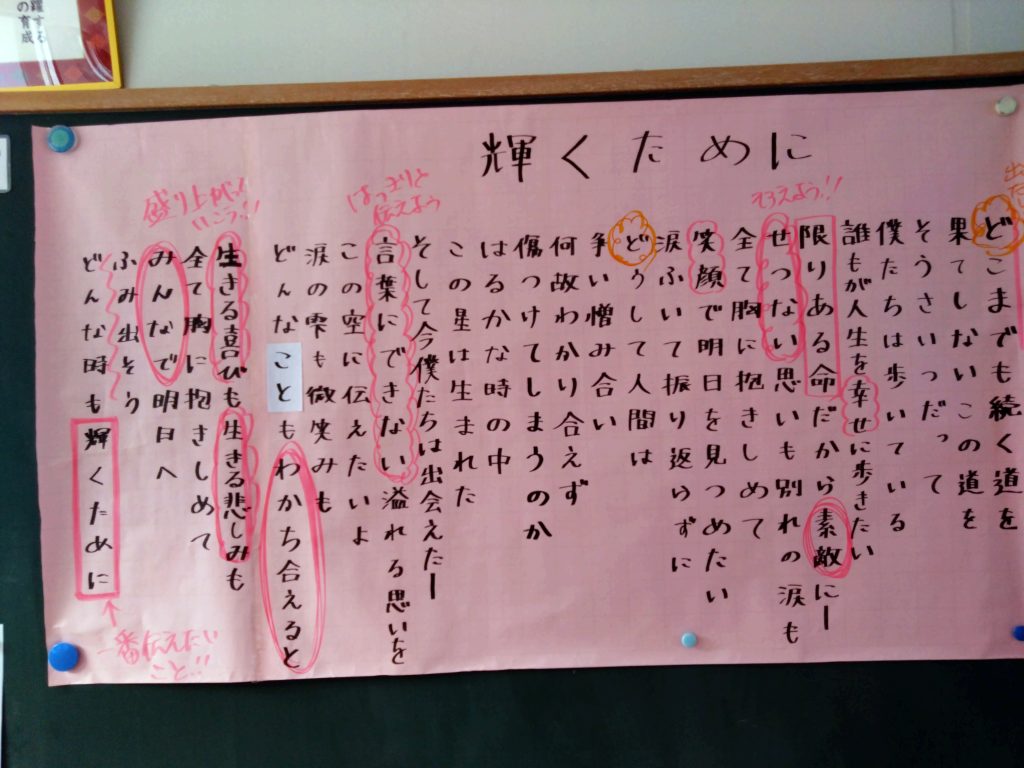 躍する
の育成
輝くために
出た
どこまでも続く道を
果てしないこの道を
そうさいつだって
僕たちは歩いている
誰もが人生を幸せに歩きたい
限りある命だから素敵にー
そろえよう!!
せつない思いも別れの涙も
全て胸に抱きしめて
笑顔で明日を見つめたい
涙ふいて振り返らずに
どうして人間は
争い憎み合い
何故わかり合えず
傷つけてしまうのか
はるかな時の中
この星は生まれた
そして今僕たちは出会えたー
はっきりと
伝えよう
言葉にできない溢れる思いを
この空に伝えたいよ
涙の雫も微笑みも
どんなこともわかち合えると
盛り上がって
いこう!!
生きる喜びも生きる悲しみも
全て胸に抱きしめて
みんなで明日へ
ふみ出そう
どんな時も輝くために
一番伝えたい
こと!!